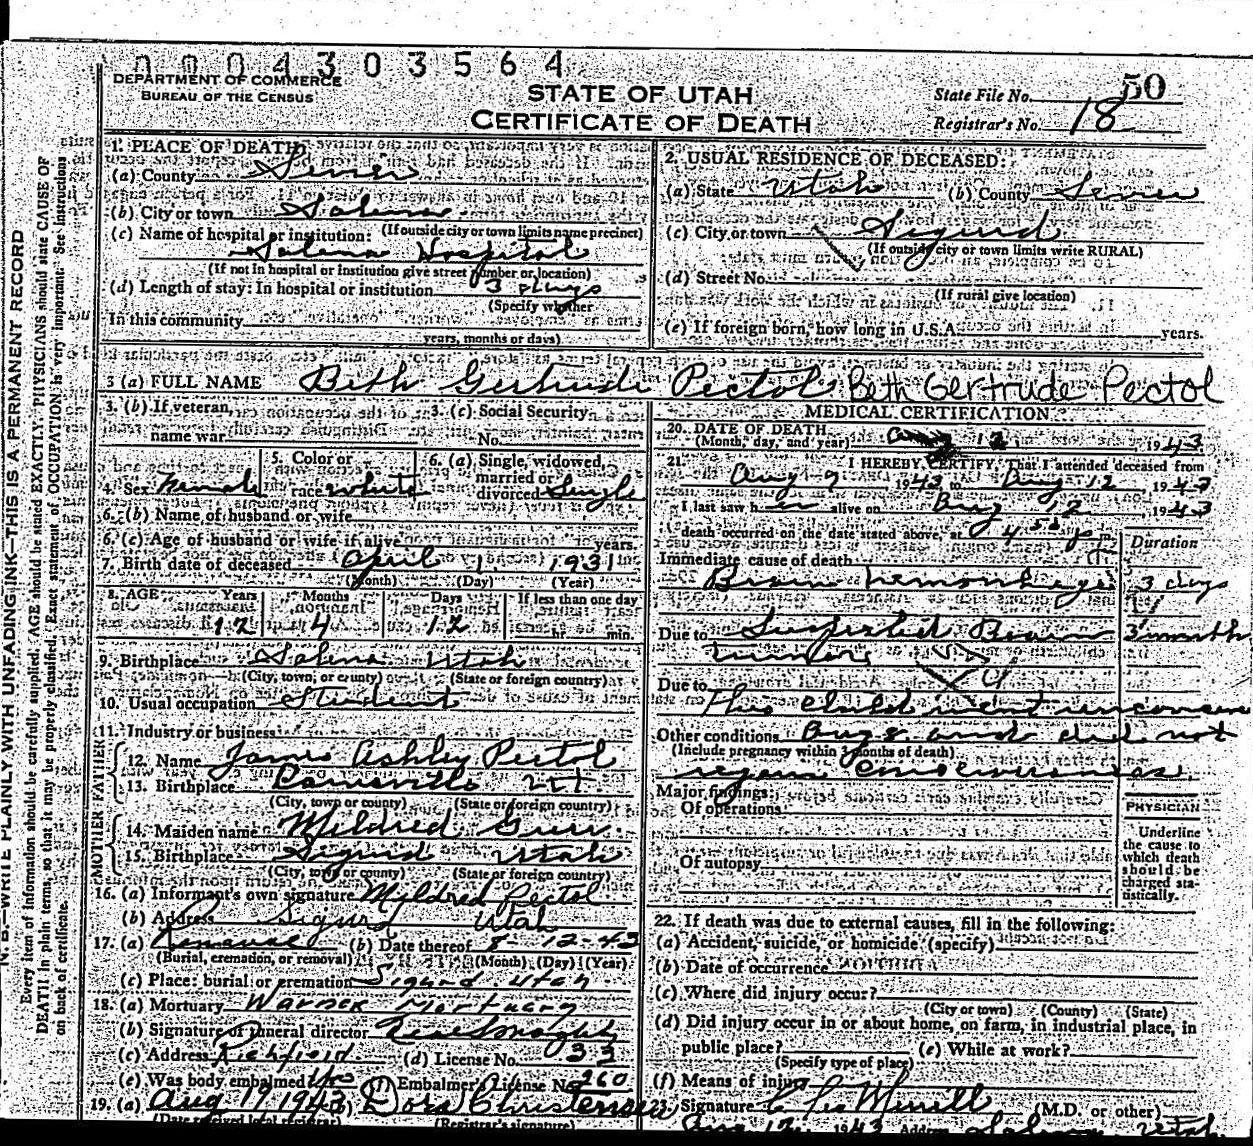 0004303564
DEPARTMENT OF COMMERCE
BUREAU OF THE CENSUS
STATE OF UTAH
CERTIFICATE OF DEATH
State File No. 50
Registrar's No. 18
N. B.—WRITE PLAINLY WITH UNFADING INK—THIS IS A PERMANENT RECORD
Every item of information should be carefully supplied. AGE should be stated EXACTLY. PHYSICIANS should state CAUSE OF
DEATH in plain terms, so that it may be properly classified. Exact statement of OCCUPATION is very important. See instructions
on back of certificate.
1. PLACE OF DEATH:
(a) County Sevier
(b) City or town Salina
(If outside city or town limits name precinct)
(c) Name of hospital or institution:
Salina Hospital
(If not in hospital or institution give street number or location)
(d) Length of stay: In hospital or institution 3 days
(Specify whether
In this community
years, months or days)
2. USUAL RESIDENCE OF DECEASED:
(a) State Utah (b) County Sevier
(c) City or town Sigurd
(If outside city or town limits write RURAL)
(d) Street No.
(If rural give location)
(e) If foreign born, how long in U.S.A. years.
3 (a) FULL NAME Beth Gertrude Pectol Beth Gertrude Pectol
3. (b) If veteran, name war 3. (c) Social Security No.
4. Sex Female 5. Color or race white 6. (a) Single, widowed, married or divorced Single
6. (b) Name of husband or wife
6. (c) Age of husband or wife if alive years.
7. Birth date of deceased April 1 1931
(Month) (Day) (Year)
8. AGE Years Months Days If less than one day
12 4 12 hr. min.
9. Birthplace Salina Utah
(City, town, or county) (State or foreign country)
10. Usual occupation Student
11. Industry or business
FATHER
12. Name James Ashley Pectol
13. Birthplace Ut
(City, town or county) (State or foreign country)
MOTHER
14. Maiden name Mildred
15. Birthplace Sigurd Utah
(City, town or county) (State or foreign country)
16. (a) Informant's own signature Mildred Pectol
(b) Address Sigurd Utah
17. (a) Removal (b) Date thereof 8-12-43
(Burial, cremation, or removal) (Month) (Day) (Year)
(c) Place: burial or cremation Sigurd Utah
18. (a) Mortuary Mortuary
(b) Signature of funeral director
(c) Address Richfield (d) License No. 33
(e) Was body embalmed Yes (f) Embalmer's License No. 260
19. (a) Aug 17 1943 (b) Dora Christensen
(Date received local registrar) (Registrar's signature)
MEDICAL CERTIFICATION
20. DATE OF DEATH
(Month, day, and year) Aug 12, 1943
21. I HEREBY CERTIFY, That I attended deceased from
Aug 9 1943 to Aug 12 1943
I last saw her alive on Aug 12 1943
death occurred on the date stated above, at 4 50 p m
Duration
Immediate cause of death
Brain hemorrhage 3 days
Due to Suspected Brain 3 months
tumor
Due to
This child went unconscious
Other conditions Aug 8 and did not
(Include pregnancy within 3 months of death)
regain consciousness.
Major findings:
Of operations
Of autopsy
PHYSICIAN
Underline
the cause to
which death
should be
charged sta-
tistically.
22. If death was due to external causes, fill in the following:
(a) Accident, suicide, or homicide (specify)
(b) Date of occurrence
(c) Where did injury occur?
(City or town) (County) (State)
(d) Did injury occur in or about home, on farm, in industrial place, in
public place? (e) While at work?
(Specify type of place)
(f) Means of injury
23. Signature Merrill (M.D. or other)
Aug 12 1943 Address Salina Utah